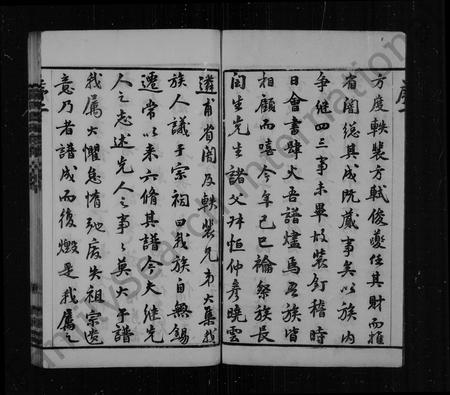 方度軼裝方軾俊夔任其財而推
省閣總其成既蕆事矣以族内
爭继四三事未畢故裝釘稽時
日會書肆火吾譜燼焉吾族皆
相顧而嘻今年己巳輪祭族長
闰生先生諸父升恒仲彦曉雲
遴甫省阁及軼裝兄弟大集我
族人議于宗祠曰我族自無錫
遷常以来六脩其譜今夫继先
人之志述先人之事之莫大于譜
我属大懼怠惰弛廢失祖宗遺
意乃者譜成而後燬是我属之
序